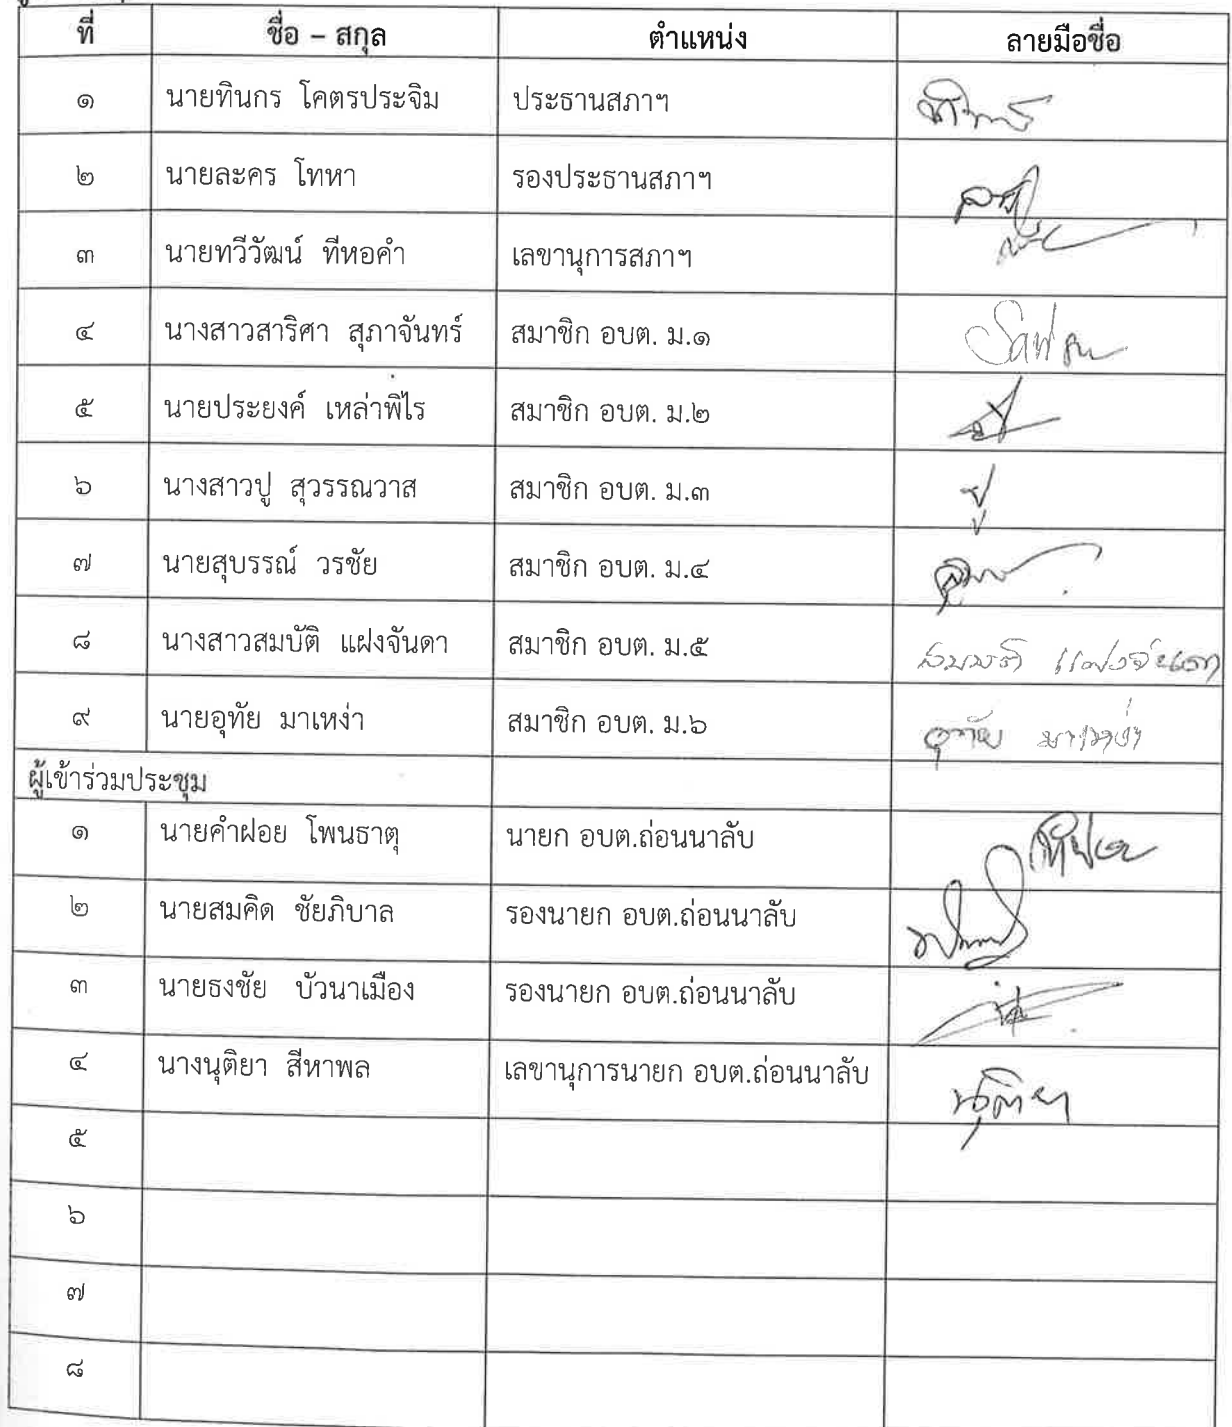 ที่ ชื่อ – สกุล ตำแหน่ง ลายมือชื่อ
๑ นายทินกร โคตรประจิม ประธานสภาฯ
๒ นายละคร โทหา รองประธานสภาฯ
๓ นายทวีวัฒน์ ทีหอคำ เลขานุการสภาฯ
๔ นางสาวสาริศา สุภาจันทร์ สมาชิก อบต. ม.๑
๕ นายประยงค์ เหล่าพิไร สมาชิก อบต. ม.๒
๖ นางสาวปู สุวรรณวาส สมาชิก อบต. ม.๓ ปู
๗ นายสุบรรณ์ วรชัย สมาชิก อบต. ม.๔
๘ นางสาวสมบัติ แฝงจันดา สมาชิก อบต. ม.๕ สมบัติ แฝงจันดา
๙ นายอุทัย มาเหง่า สมาชิก อบต. ม.๖ อุทัย มาเหง่า
ผู้เข้าร่วมประชุม
๑ นายคำฝอย โพนธาตุ นายก อบต.ถ่อนนาลับ
๒ นายสมคิด ชัยภิบาล รองนายก อบต.ถ่อนนาลับ
๓ นายธงชัย บัวนาเมือง รองนายก อบต.ถ่อนนาลับ
๔ นางนุติยา สีหาพล เลขานุการนายก อบต.ถ่อนนาลับ นุติยา
๕
๖
๗
๘